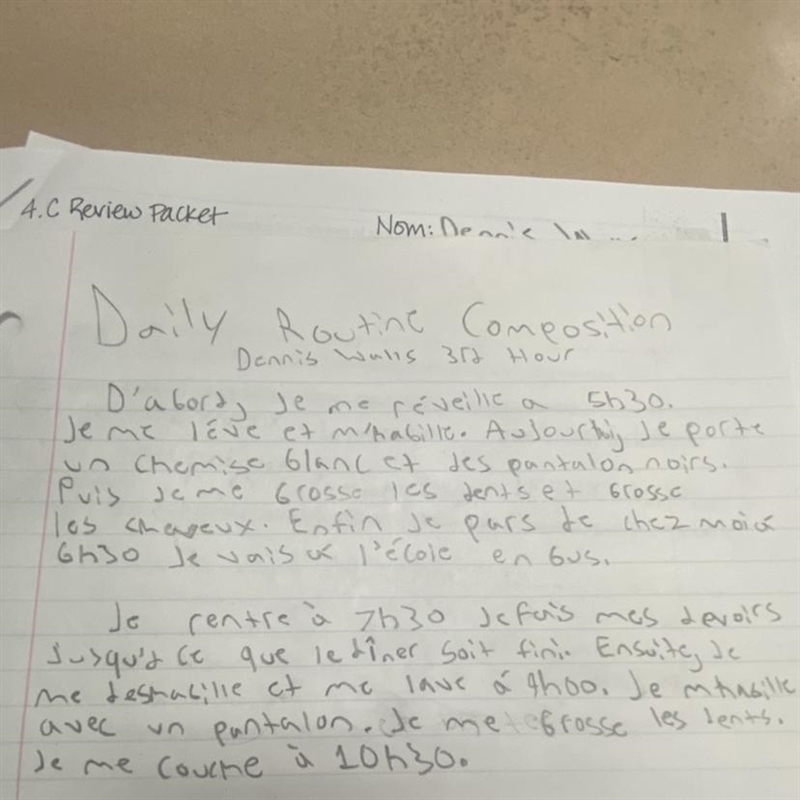 4.C Review Packet
Nom: Dennis
Daily Routine Composition
Dennis Walls 3rd Hour
D'abord, Je me réveille a 5h30.
Je me léve et m'habille. Aujourd'hui, Je porte
un chemise blanc et des pantalon noirs.
Puis Je me brosse les dents et brosse
les cheveux. Enfin Je pars de chez moi à
6h30 Je vais à l'école en bus.
Je rentre à 7h30 Je fais mes devoirs
Jusqu'à ce que le dîner soit fini. Ensuite, Je
me deshabille et me lave á 9h00. Je m'habille
avec un pantalon. Je me brosse les dents.
Je me couche à 10h30.